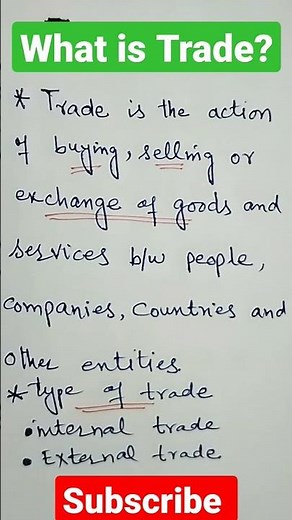 What is Trade?
* Trade is the action
of buying, selling or
exchange of goods and
services b/w people,
companies, Countries and
other entities
* type of trade
• internal trade
• External trade
Subscribe